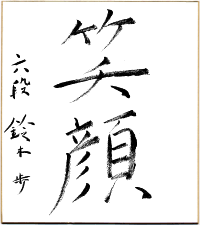 笑顔
六段 鈴木歩